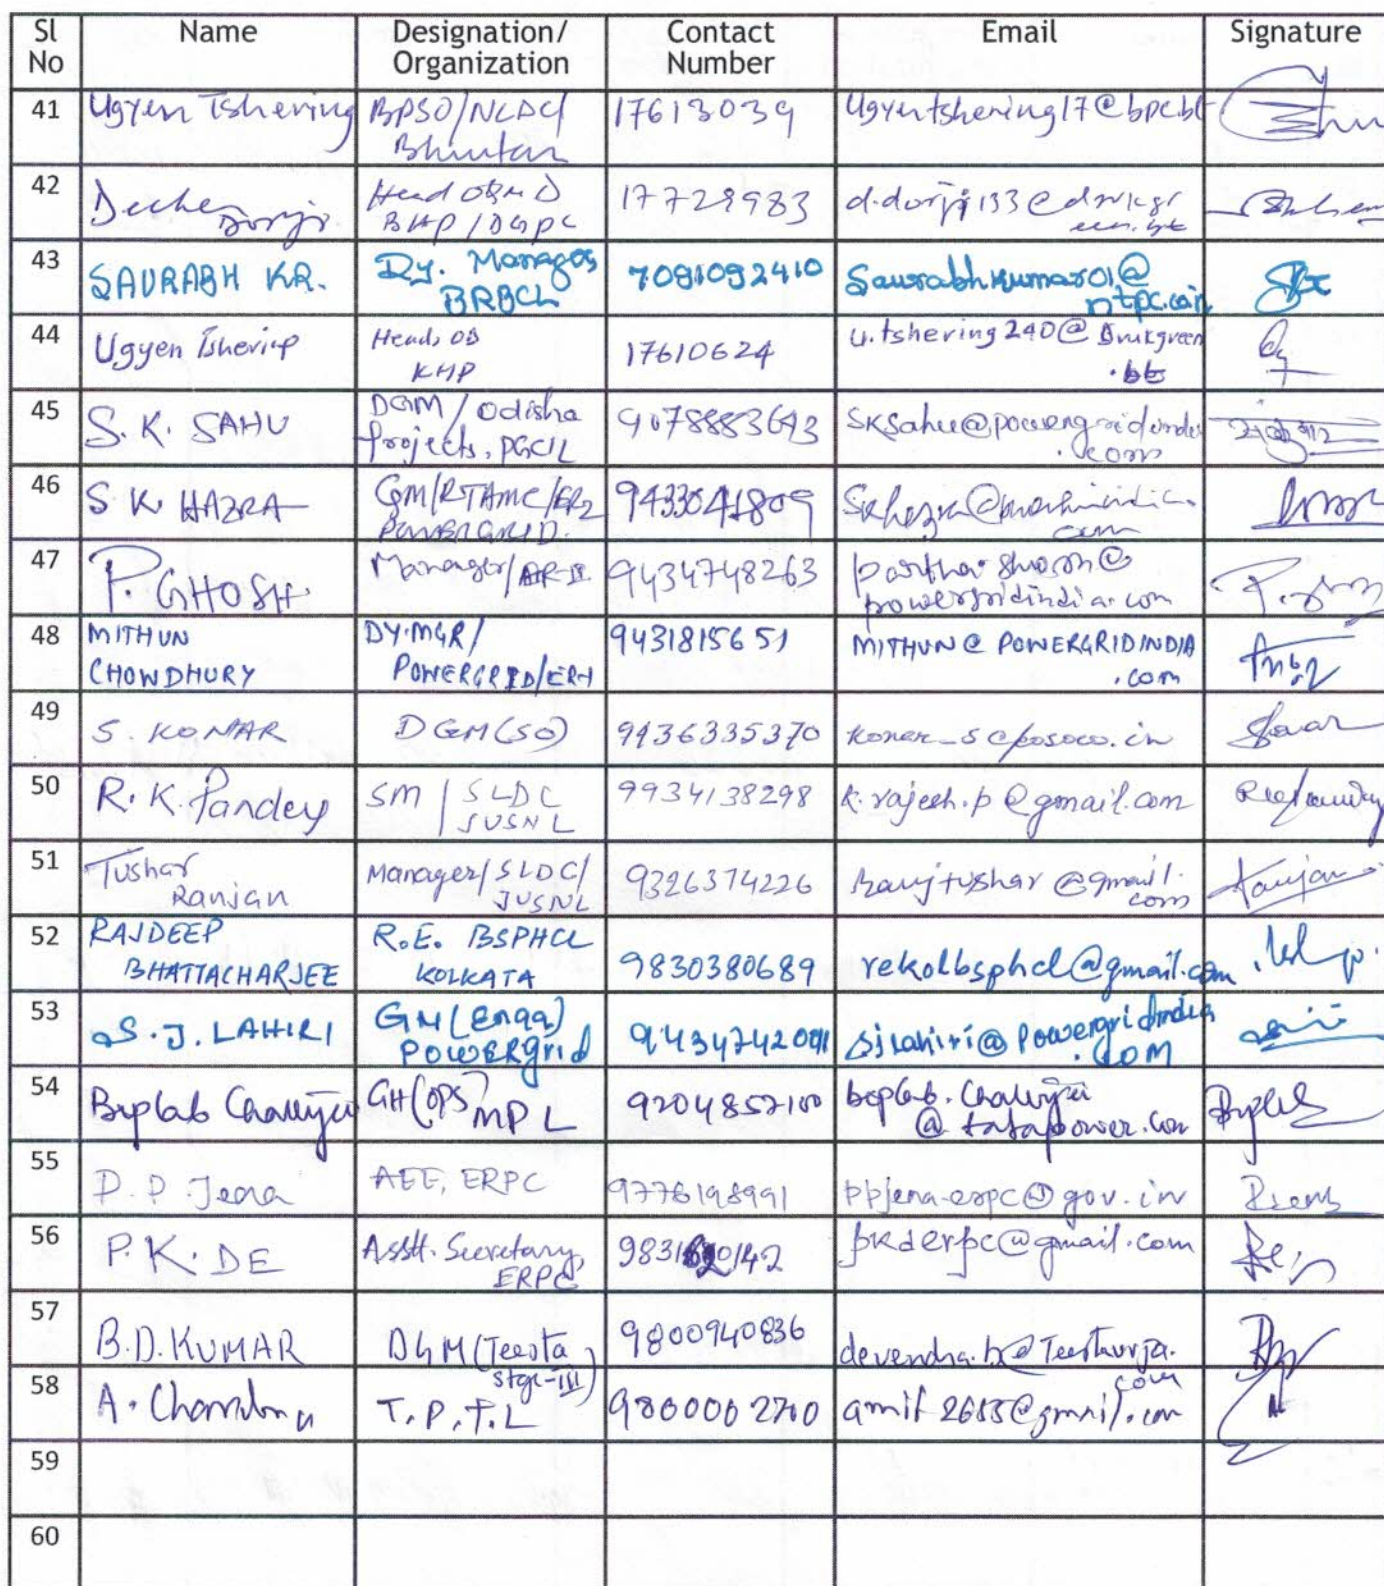 Sl No Name Designation/ Organization Contact Number Email Signature
41 Ugyen Tshering BPSO/NLDC/ Bhutan 17613039 ugyentshering17@bpc.bt
42 Dechen Dorji Head O&MD BHP/DGPC 17729983
43 SAURABH KR. Dy. Manager BRBCL 7091092410 Saurabhkumar01@
44 Ugyen Tshering Head, OD KHP 17610624 u.tshering240@Drukgreen .bt
45 S. K. SAHU DGM/Odisha Projects, PGCIL SKSahu@powergridindia .com
46 S K. HAZRA CGM/RTAMC/ER2 POWERGRID. 9433041809
47 P. GHOSH. 9434748263 powergridindia.com
48 MITHUN CHOWDHURY DY.MGR/ POWERGRID/ER-I 9431815651 MITHUN@POWERGRIDINDIA .com
49 S. KONAR DGM(SO) 9436335370 koner_s@posoco.in
50 R. K. Pandey SM / SLDC JUSNL 9934138298 k.rajesh.p@gmail.com
51 Tushar Ranjan Manager/SLDC/ JUSNL 9326374226 ranjtushar@gmail. com
52 RAJDEEP BHATTACHARJEE R.E. BSPHCL KOLKATA 9830380689 rekolbsphcl@gmail.com
53 S.J. LAHIRI GM(Engg) POWERgrid sjlahiri@powergridindia .COM
54 GM(OPS) MPL 9204857100 @tatapower.com
55 P. P. Jena AEE, ERPC 9776198991 ppjena.erpc@gov.in
56 P. K. DE Asstt. Secretary, ERPC pkderpc@gmail.com
57 B.D. KUMAR DGM(Teesta stge-III) 9800940836 devendra.b@Teestaurja. com
58 T.P.T.L 9800002700
59
60